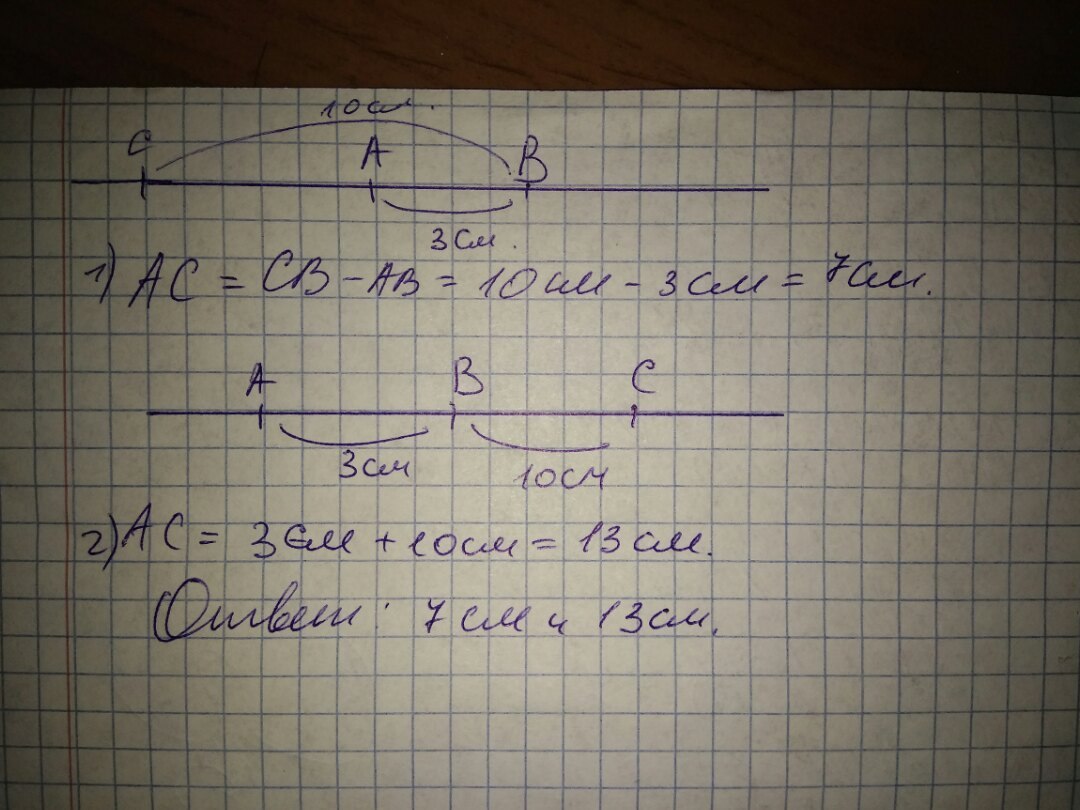 10см.
C A B
3см.
1) AC = CB - AB = 10см - 3см = 7см.
A B C
3см 10см
2) AC = 3см + 10см = 13см.
Ответ: 7см и 13см.